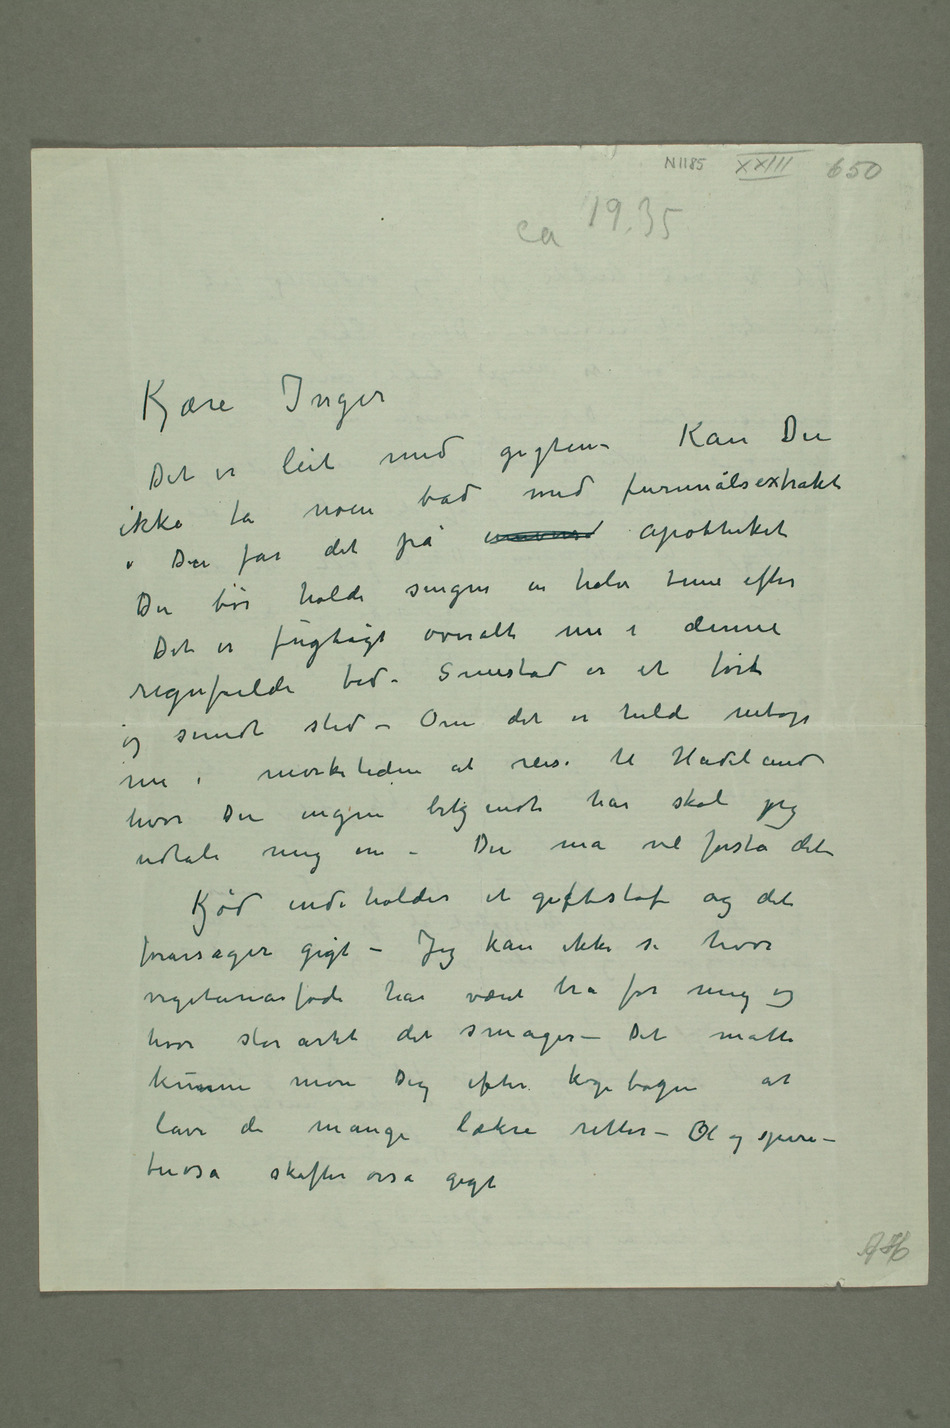 N1185 XXIII 650
ca 19.35
Kjære Inger
Det er leit med gigten – Kan Du
ikke ta noen bad med furunålsextrakt
– Du får det på apotheket
Du bør holde sengen en halv time efter
Det er fugtigt overalt nu i denne
regnfulde tid – Smestad er et tørt
og sundt sted – Om det er heldi netop
nu i mørketiden at reise til Hadeland
hvor Du ingen bekjendte har skal jeg
udtale mig om – Du må vel forstå det
Kjød indeholder et giftstof og det
forårsager gigt – Jeg kan ikke si hvor
vegetarianføde har været bra for mig og
hvor storartet det smager – Det måtte
kunne more Dig efter kogebogen at
lave de mange lækre retter – Øl og spiri-
tuosa skaffer også gigt